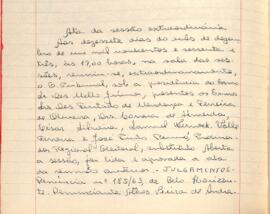 Ata da sessão extraordinária
Aos dezessete dias do mês de dezem
bro de um mil novecentos e sessenta e
três, às 17,00 horas, na sala das ses
sões, reuniu-se, extraordinariamente,
o E. Tribunal, sob a presidência do Exmo
Des. Mello, presentes os Exmos
Srs. Des. e Ferreira
de Oliveira, Drs. Corrêa de Almeida,
Cesar Silveira,
Ferreira e José
Regional Eleitoral, Aberta
a sessão, foi lida e aprovada a ata
da reunião anterior. - JULGAMENTOS -
Denúncia nº 155/63, de Belo Horizon
te. Denunciante Athos Vieira de Andra